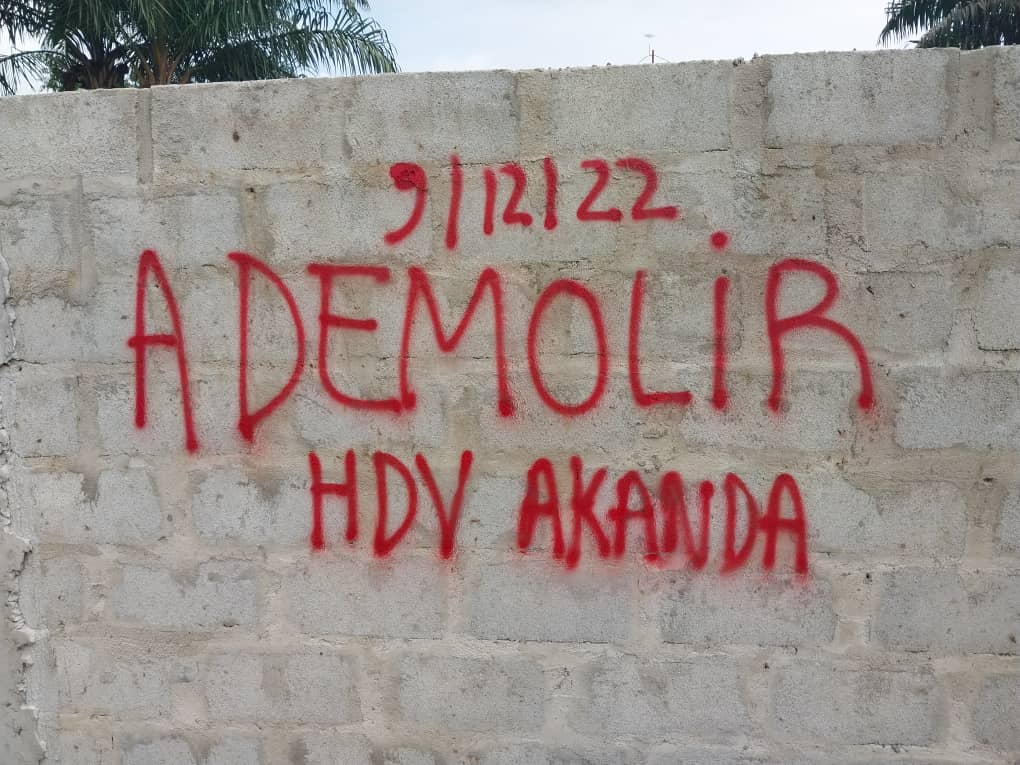 9/12/22
A DEMOLiR
HDV AKANDA